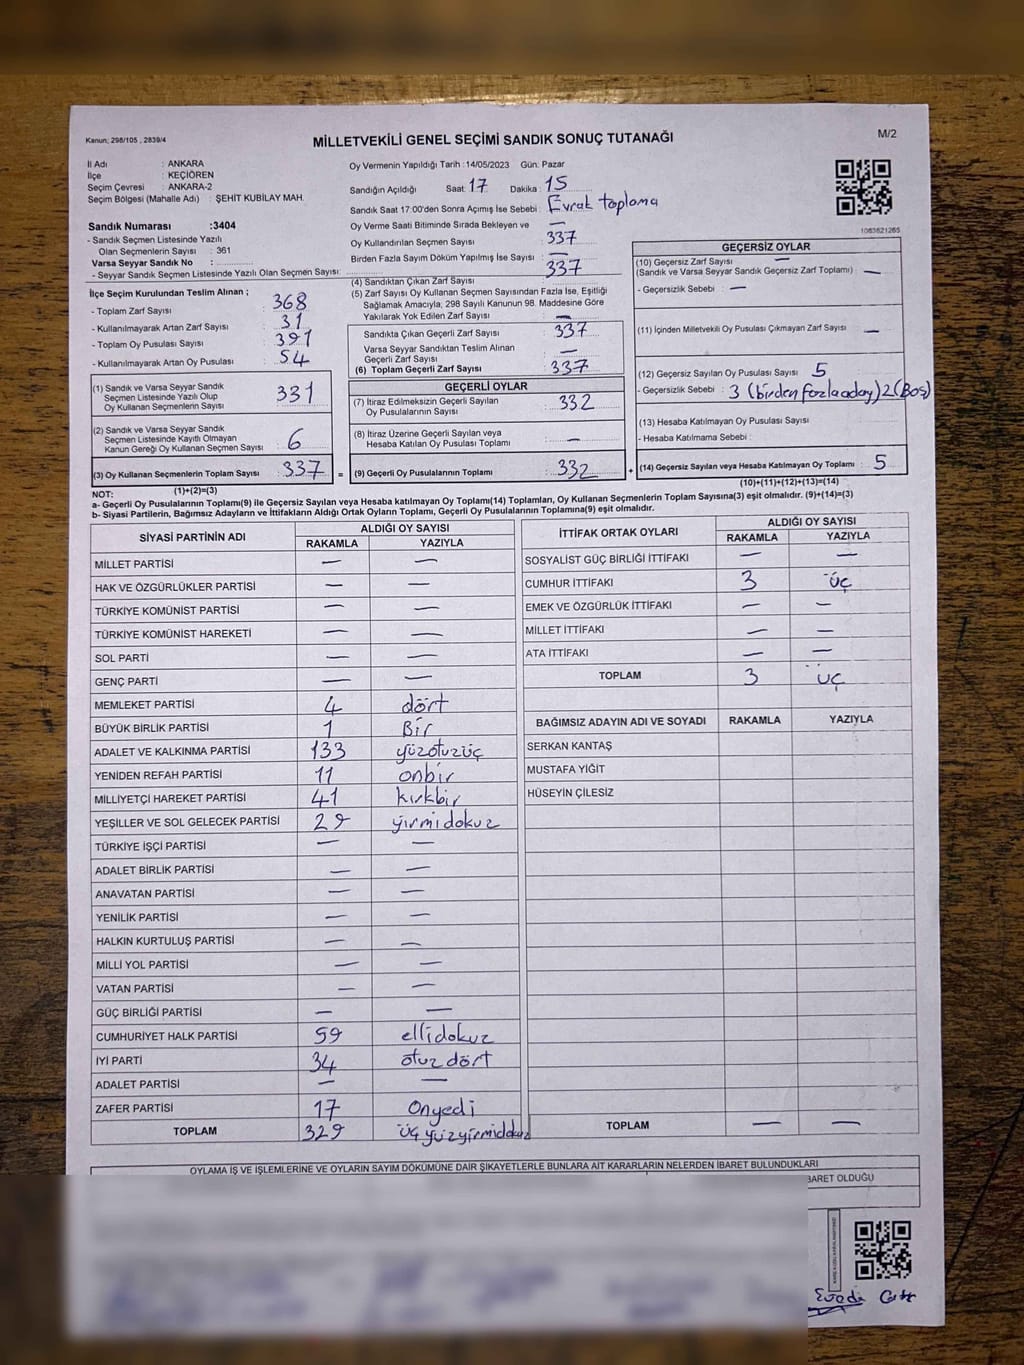 Kanun; 298/105 , 2839/4
MİLLETVEKİLİ GENEL SEÇİMİ SANDIK SONUÇ TUTANAĞI
M/2
İl Adı : ANKARA
İlçe : KEÇİÖREN
Seçim Çevresi : ANKARA-2
Seçim Bölgesi (Mahalle Adı) : ŞEHİT KUBİLAY MAH.
Sandık Numarası :3404
- Sandık Seçmen Listesinde Yazılı
Olan Seçmenlerin Sayısı : 361
Varsa Seyyar Sandık No :
- Seyyar Sandık Seçmen Listesinde Yazılı Olan Seçmen Sayısı:
Oy Vermenin Yapıldığı Tarih :14/05/2023 Gün: Pazar
Sandığın Açıldığı Saat: 17 Dakika : 15
Sandık Saat 17:00'den Sonra Açımış İse Sebebi : Evrak toplama
Oy Verme Saati Bitiminde Sırada Bekleyen ve : —
Oy Kullandırılan Seçmen Sayısı 337
Birden Fazla Sayım Döküm Yapılmış İse Sayısı : —
1063621265
İlçe Seçim Kurulundan Teslim Alınan ;
- Toplam Zarf Sayısı : 368
- Kullanılmayarak Artan Zarf Sayısı : 31
- Toplam Oy Pusulası Sayısı : 391
- Kullanılmayarak Artan Oy Pusulası : 54
(1) Sandık ve Varsa Seyyar Sandık
Seçmen Listesinde Yazılı Olup
Oy Kullanan Seçmenlerin Sayısı : 331
(2) Sandık ve Varsa Seyyar Sandık
Seçmen Listesinde Kayıtlı Olmayan
Kanun Gereği Oy Kullanan Seçmen Sayısı : 6
(3) Oy Kullanan Seçmenlerin Toplam Sayısı : 337 =
(1)+(2)=(3)
(4) Sandıktan Çıkan Zarf Sayısı : 337
(5) Zarf Sayısı Oy Kullanan Seçmen Sayısından Fazla İse, Eşitliği
Sağlamak Amacıyla, 298 Sayılı Kanunun 98. Maddesine Göre
Yakılarak Yok Edilen Zarf Sayısı : —
Sandıkta Çıkan Geçerli Zarf Sayısı : 337
Varsa Seyyar Sandıktan Teslim Alınan
Geçerli Zarf Sayısı : —
(6) Toplam Geçerli Zarf Sayısı : 337
GEÇERLİ OYLAR
(7) İtiraz Edilmeksizin Geçerli Sayılan
Oy Pusulalarının Sayısı : 332
(8) İtiraz Üzerine Geçerli Sayılan veya
Hesaba Katılan Oy Pusulası Toplamı : —
(9) Geçerli Oy Pusulalarının Toplamı : 332 +
GEÇERSİZ OYLAR
(10) Geçersiz Zarf Sayısı —
(Sandık ve Varsa Seyyar Sandık Geçersiz Zarf Toplamı) : —
- Geçersizlik Sebebi : —
(11) İçinden Milletvekili Oy Pusulası Çıkmayan Zarf Sayısı : —
(12) Geçersiz Sayılan Oy Pusulası Sayısı : 5
- Geçersizlik Sebebi : 3 (birden fazla aday) 2 (Boş)
(13) Hesaba Katılmayan Oy Pusulası Sayısı :
- Hesaba Katılmama Sebebi :
(14) Geçersiz Sayılan veya Hesaba Katılmayan Oy Toplamı : 5
(10)+(11)+(12)+(13)=(14)
NOT:
a- Geçerli Oy Pusulalarının Toplamı(9) ile Geçersiz Sayılan veya Hesaba katılmayan Oy Toplamı(14) Toplamları, Oy Kullanan Seçmenlerin Toplam Sayısına(3) eşit olmalıdır. (9)+(14)=(3)
b- Siyasi Partilerin, Bağımsız Adayların ve İttifakların Aldığı Ortak Oyların Toplamı, Geçerli Oy Pusulalarının Toplamına(9) eşit olmalıdır.
SİYASİ PARTİNİN ADI ALDIĞI OY SAYISI
RAKAMLA YAZIYLA
MİLLET PARTİSİ — —
HAK VE ÖZGÜRLÜKLER PARTİSİ — —
TÜRKİYE KOMÜNİST PARTİSİ — —
TÜRKİYE KOMÜNİST HAREKETİ — —
SOL PARTİ — —
GENÇ PARTİ — —
MEMLEKET PARTİSİ 4 dört
BÜYÜK BİRLİK PARTİSİ 1 Bir
ADALET VE KALKINMA PARTİSİ 133 yüzotuzüç
YENİDEN REFAH PARTİSİ 11 onbir
MİLLİYETÇİ HAREKET PARTİSİ 41 kırkbir
YEŞİLLER VE SOL GELECEK PARTİSİ 29 yirmidokuz
TÜRKİYE İŞÇİ PARTİSİ — —
ADALET BİRLİK PARTİSİ — —
ANAVATAN PARTİSİ — —
YENİLİK PARTİSİ — —
HALKIN KURTULUŞ PARTİSİ — —
MİLLİ YOL PARTİSİ — —
VATAN PARTİSİ — —
GÜÇ BİRLİĞİ PARTİSİ — —
CUMHURİYET HALK PARTİSİ 59 ellidokuz
İYİ PARTİ 34 otuz dört
ADALET PARTİSİ — —
ZAFER PARTİSİ 17 Onyedi
TOPLAM 329 üçyüzyirmidokuz
İTTİFAK ORTAK OYLARI ALDIĞI OY SAYISI
RAKAMLA YAZIYLA
SOSYALİST GÜÇ BİRLİĞİ İTTİFAKI — —
CUMHUR İTTİFAKI 3 üç
EMEK VE ÖZGÜRLÜK İTTİFAKI — —
MİLLET İTTİFAKI — —
ATA İTTİFAKI — —
TOPLAM 3 üç
BAĞIMSIZ ADAYIN ADI VE SOYADI RAKAMLA YAZIYLA
SERKAN KANTAŞ
MUSTAFA YİĞİT
HÜSEYİN ÇİLESİZ
TOPLAM — —
OYLAMA İŞ VE İŞLEMLERİNE VE OYLARIN SAYIM DÖKÜMÜNE DAİR ŞİKAYETLERLE BUNLARA AİT KARARLARIN NELERDEN İBARET BULUNDUKLARI
BARET OLDUĞU